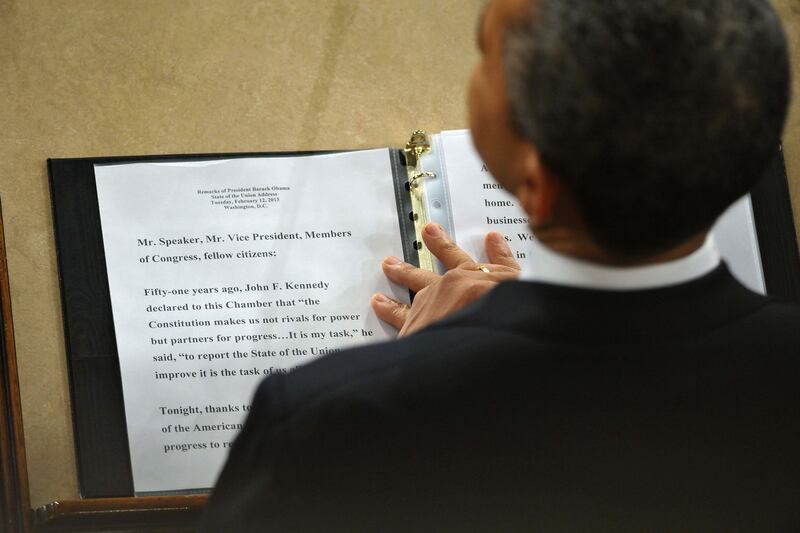 Remarks of President Barack Obama
State of the Union Address
Tuesday, February 12, 2013
Washington, D.C.
Mr. Speaker, Mr. Vice President, Members
of Congress, fellow citizens:
Fifty-one years ago, John F. Kennedy
declared to this Chamber that “the
Constitution makes us not rivals for power
but partners for progress…It is my task,” he
said, “to report the State of the Union
improve it is the task of us
Tonight, thanks to
of the American
progress to
home.
in